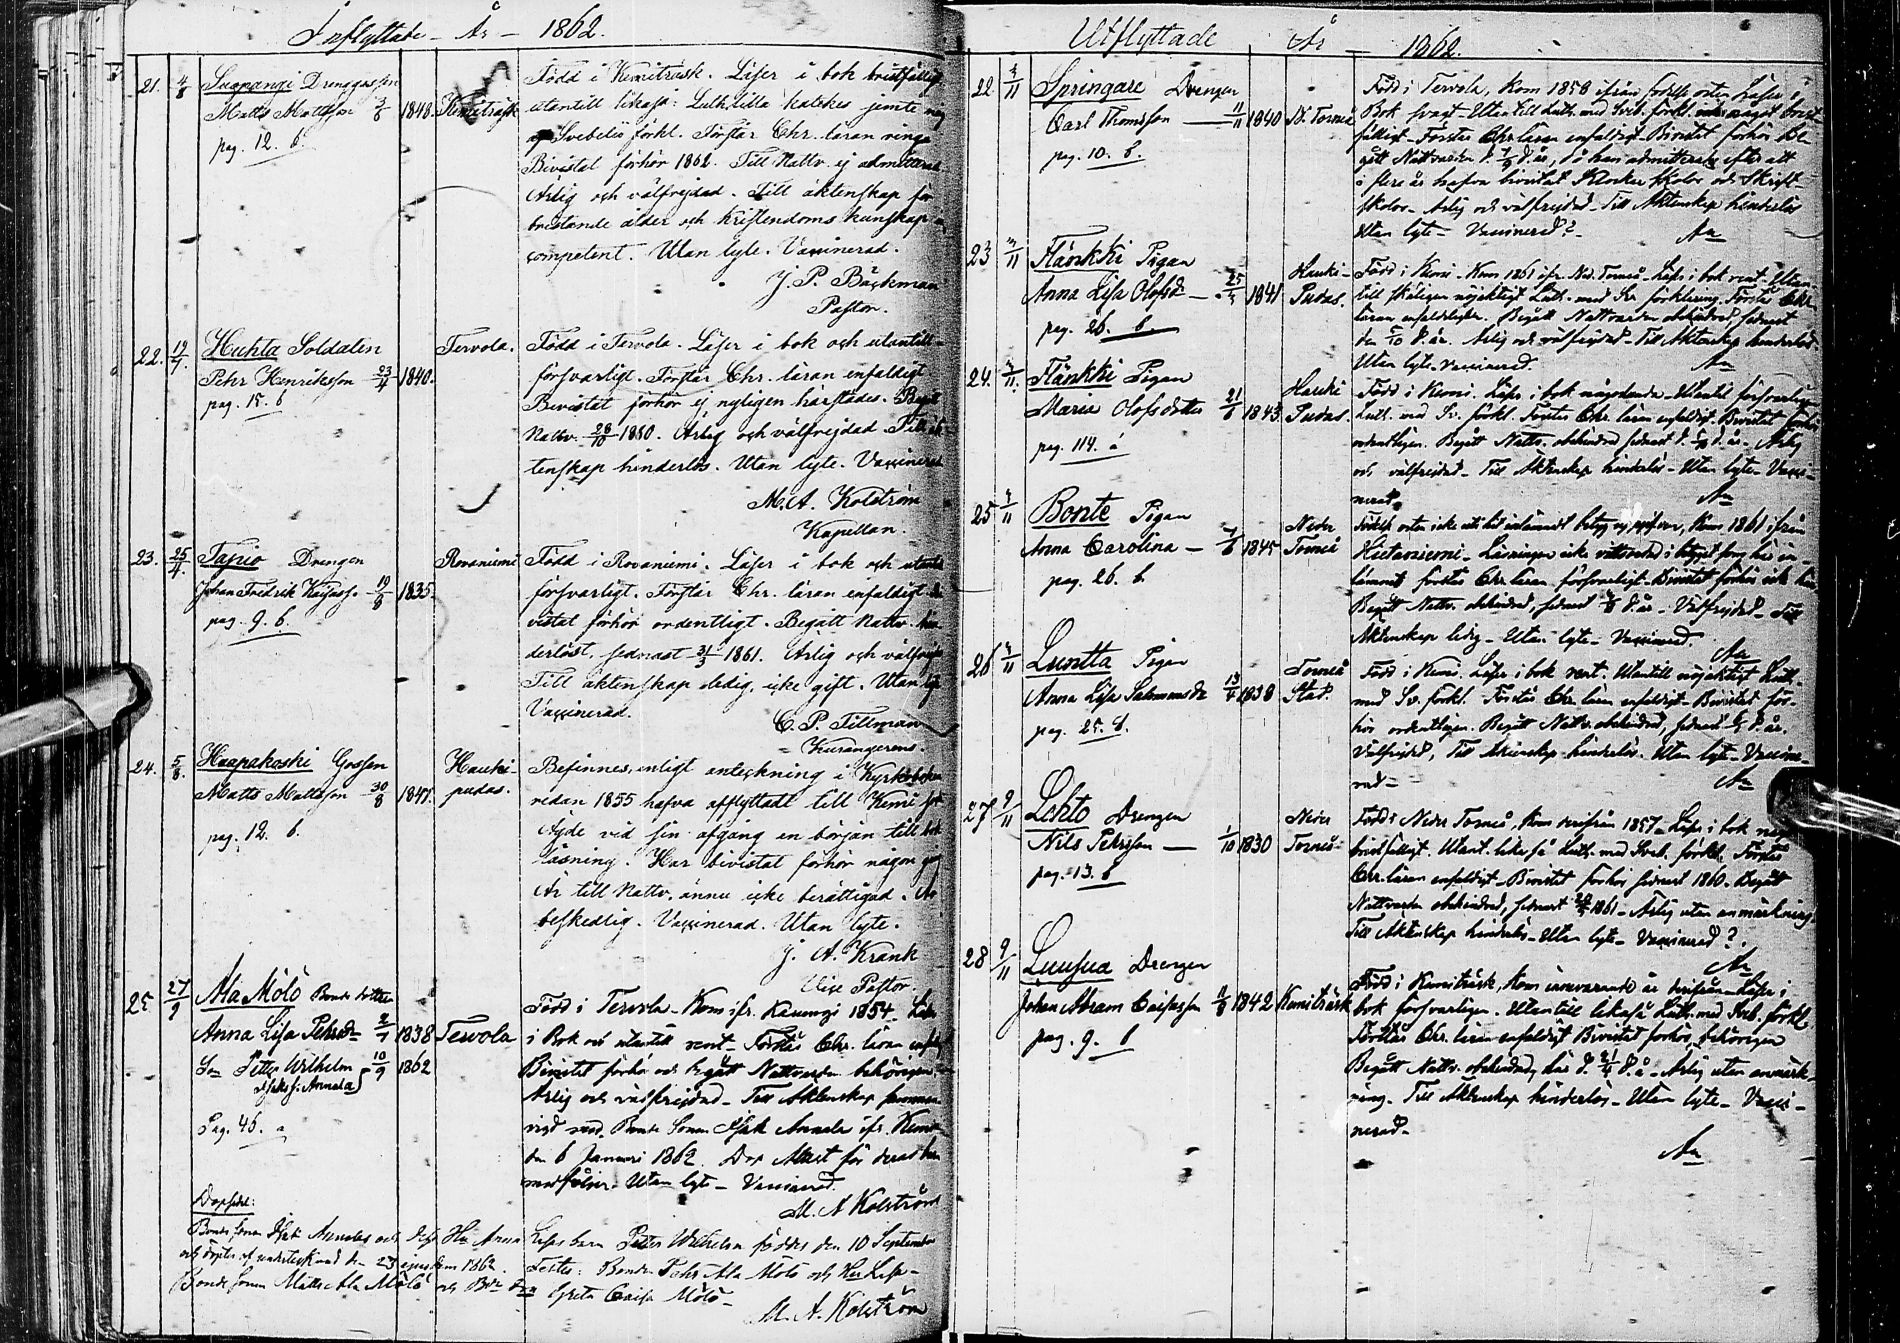 Inflyttade - År - 1862.
21. 4/8 Suopangi Drenggossen
Matts Mattsson 3/8 1848. Kemiträsk
pag. 12. b.
Född i Kemiträsk. Läser i bok bristfälligt
utantill likaså: Luth. lilla katekes jemte
Svebelii förkl. Förstår Chr. läran ringa
Bivistat förhör 1862. Till Nattv. ej admitterad.
Ärlig och välfrejdad. Till äktenskap för
bristande ålder och Kristendoms kunskap
competent. Utan lyte. Vaccinerad.
J. P. Bäckman
Pastor.
22. 19/7 Huhta Soldaten
Pehr Henriksson 23/4 1840. Tervola.
pag. 15. b
Född i Tervola. Läser i bok och utantill
försvarligt. Förstår Chr. läran enfaldigt
Bivistat förhör ej nyligen härstädes. Begått
Nattv. 28/10 1860. Ärlig och välfrejdad. Till äk-
tenskap hinderlös. Utan lyte. Vaccinerad
M. A. Kolström
Kapellan.
23. 25/4 Tapio Drengen
Johan Fredrik 19/8 1835. Rovaniemi
pag. 9. b.
Född i Rovaniemi. Läser i bok och utantill
försvarligt. Förstår Chr. läran enfaldigt.
vistat förhör ordentligt. Begått Nattv.
derlöst, sednast 31/3 1861. Ärlig och välfrejd
Till äktenskap ledig, icke gift. Utan lyte
Vaccinerad.
C. P. Tillman
24. 5/8. Haapakoski Gossen
Matts Mattsson 30/8 1847. Hauki-
pudas.
pag. 12. b.
Befinnes, enligt anteckning i Kyrkoboken
redan 1855 hafva afflyttat till Kemi
Ägde vid sin afgång en början till bok
läsning. Har bivistat förhör någon gång
Är till Nattv. ännu icke berättigad.
beskedlig. Vaccinerad. Utan lyte.
J. A. Krank
Vice Pastor.
25 27/9 Ala Mölö Bonde dottren
Anna Lisa Pehrsdr 2/7 1838 Tervola
Son Petter Wilhelm 10/9 1862
Pag. 45. a
Född i Tervola. Kom ifr. 1854. Läser
i Bok och utantill rent. Förstår Chr. läran
Bivistat förhör och begått Nattvarden behörigen.
Ärlig och välfrejdad. Till Äktenskap samman
vigd med Bonde Sonen Isak Annala ifr. Kemi
den 6 Januari 1862. Dop Attest för deras barn
medföljer. Utan lyte. Vaccinerad.
M. A Kolström
Dopsedel:
Bonde Sonen Isak Annalas och dess Hu Anna Lisas barn Petter Wilhelm föddes den 10 September
och döptes af undertecknad den 23 ejusdem 1862. Testes: Bonden Pehr Ala Mölö och Hu Lisa
Bonde Sonen Matts Ala Mölö och Greta Caisa Mölö
M. A. Kolström
Utflyttade År 1862.
22 3/11 Springare Drengen
Carl Thomsson 11/11 1840 N. Torneå
pag. 10. b.
Född i Tervola, Kom 1858 ifrån födelse orten, Läser i
Bok svagt. Utantill Luth. med Sveb. förkl. något brist-
fälligt. Förstår Chr. läran enfaldigt. Bivistat förhör Be-
gått Nattvarden d. 7/9 d. år, då han admitterades efter att
i flere år hafva bivistat Klockar skolor och Skrift-
skolor. Ärlig och välfrejdad. Till Äktenskap hinderlös
Utan lyte. Vaccinerad?
23 3/11 Hänkki Pigan
Anna Lisa Olofsdr 25/4 1841 Hauki-
Pudas.
pag. 26. b.
Född i Kemi. Kom 1861 ifr. Ned. Torneå. Läser i bok rent. Utan
till skäligen nöjaktigt Luth. med Sv. förklaring. Förstår Chr.
läran enfaldigt. Begått Nattvarden obehindrad sednast
den 5/10 d. år. Ärlig och välfrejdad. Till Äktenskap hinderlös.
Utan lyte. Vaccinerad.
24. 3/11. Hänkki Pigan
Maria Olofsdotter 21/6 1843. Hauki
Pudas.
pag. 114. a
Född i Kemi. Läser i bok någorlunda. Utantill försvarligen
Luth. med Sv. förkl. Förstår Chr. läran enfaldigt. Bivistat förhör
ordentligen. Begått Nattv. obehindrad sednast d. d. år. Ärlig
och välfrejdad. Till Äktenskap hinderlös. Utan lyte. Vacci-
nerad.
25 3/11 Bonte Pigan
Anna Carolina 7/6 1845 Neder
Torneå
pag. 26. b.
Födelse orten icke uti hit inlemnadt betyg uppgifven, Kom 1861 ifrån
Hietaniemi. Läsningen icke vitsordad i betyget som här in-
lemnats förstår Chr. läran försvarligt. Bivistat förhör
Begått Nattv. obehindrad, sednast d. år. Välfrejdad. Till
Äktenskap ledig. Utan lyte. Vaccinerad.
26 3/11 Luntta Pigan
Anna Lisa Salomonsdr 13/4 1838 Torneå
Stad.
pag. 25. b.
Född i Kemi. Läser i bok rent. Utantill nöjaktigt Luth.
med Sv. förkl. Förstår Chr. läran enfaldigt. Bivistat för-
hör ordentligen. Begått Nattv. obehindrad, sednast d. år.
Välfrejdad, Till Äktenskap hinderlös. Utan lyte. Vaccine-
rad.
27 9/11 Lehto Drengen
Nils Pehrsson 1/10 1830 Neder
Torneå
pag. 13. b
Född i Neder Torneå, Kom derifrån 1857. Läser i bok något
bristfälligt. Utant. likaså Luth. med Sveb. förkl. Förstår
Chr. läran enfaldigt. Bivistat förhör sednast 1860. Begått
Nattvarden obehindrad, sednast 1861. Ärlig utan anmärkning.
Till Äktenskap hinderlös. Utan lyte. Vaccinerad?.
28 9/11 Luusua Drengen
Johan Abram Caisasson 1842 Kemiträsk
pag. 9. b
Född i Kemiträsk, Kom innevarande år derifrån. Läser i
bok försvarligen. Utantill likaså Luth. med Sveb. förkl.
Förstår Chr. läran enfaldigt Bivistat förhör behörigen
Begått Nattv. obehindrad, här d. 21/4 d. å. Ärlig utan anmärk-
ning. Till Äktenskap hinderlös. Utan lyte. Vacci-
nerad.